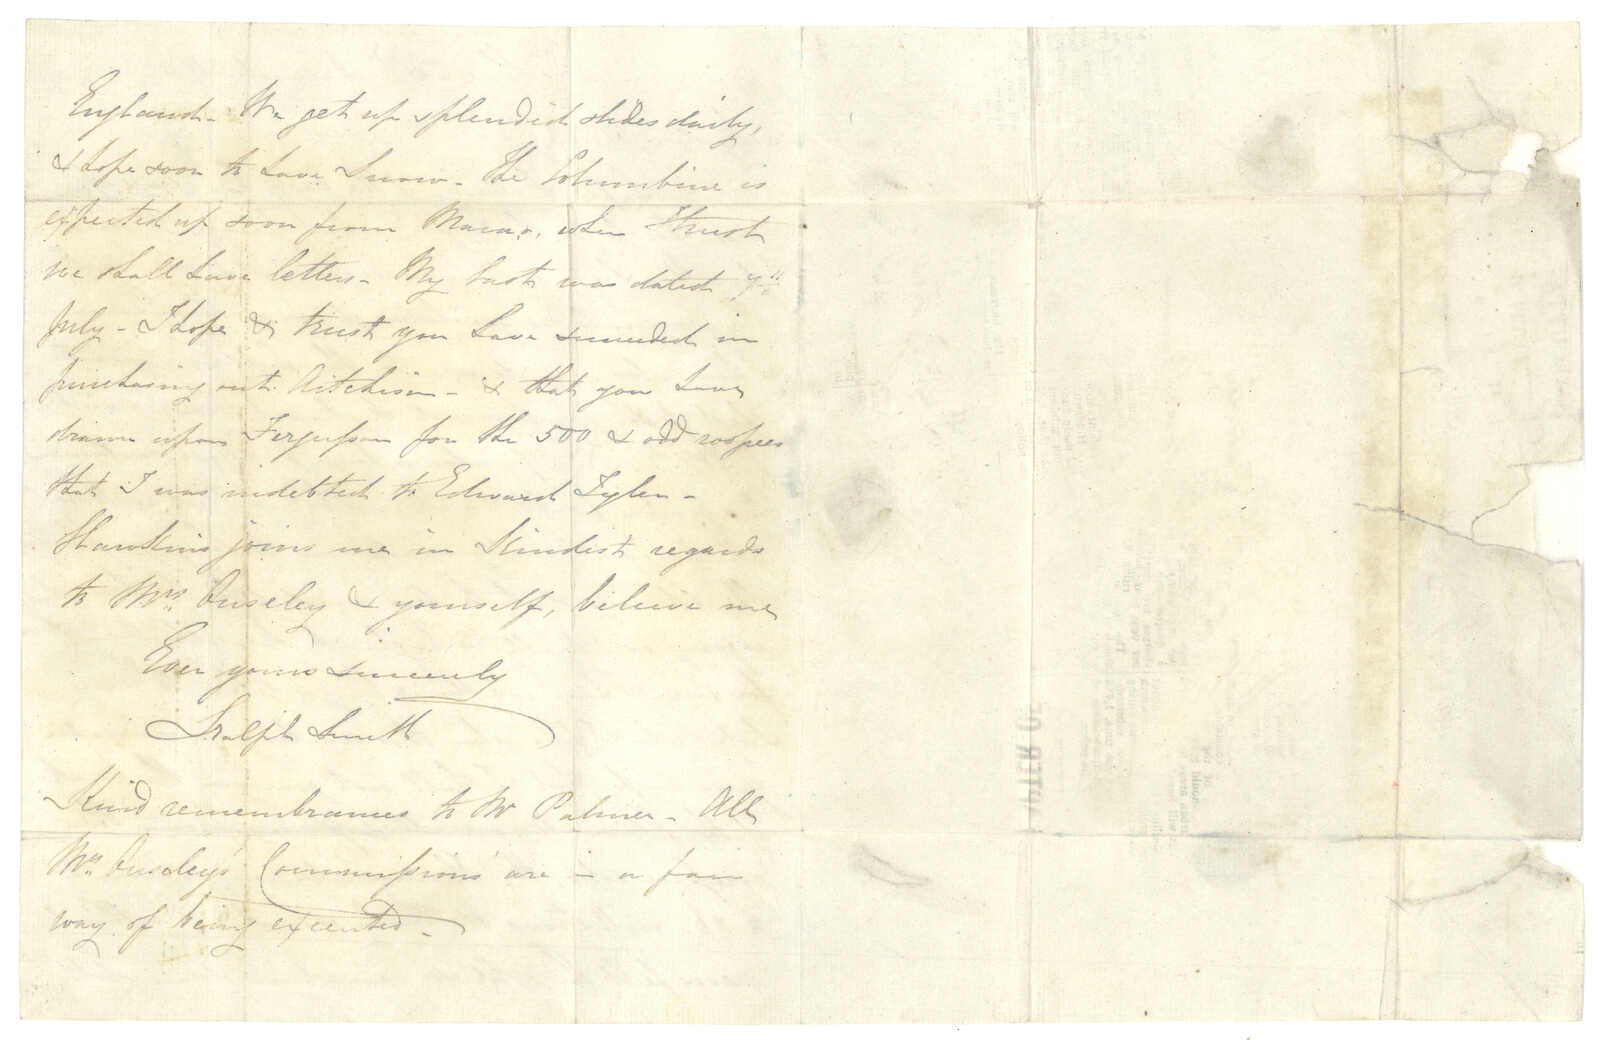 England - We get up splendid slides daily,
& hope soon to have Snow - The Columbine is
expected up soon from Macao, when I trust
we shall have letters - My last was dated 7th
July - I hope & trust you have succeeded in
purchasing out Aitchison - & that you have
drawn upon Ferguson for the 500 & odd roopees
that I was indebted to Edward Tyler -
Hawkins joins me in kindest regards
to Mrs Ouseley & yourself, believe me
Ever yours sincerely
Ralph Smith
Kind remembrances to Mr Palmer - All
Mrs Ouseley's Commissions are in a fair
way of being executed -